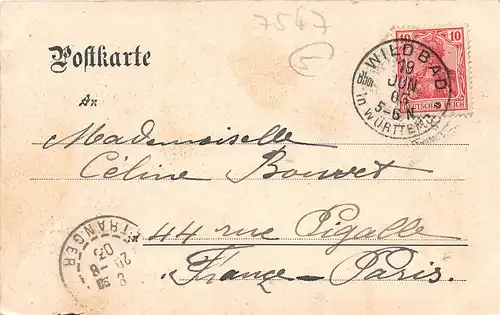 7547
1
Postkarte
An
10 10
DEUTSCHES REICH
WILDBAD
19
JUN
03
5-6 N.
i. WÜRTTEMB.
Mademoiselle
Céline Bouvet
44 rue Pigalle
France - Paris.
ETRANGER
20
03